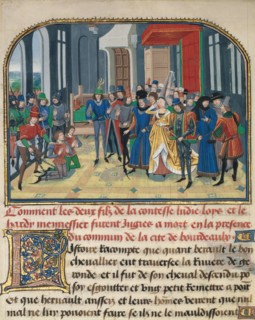 Comment les deux filz de la contesse ludie lors et le
hardy mennessier furent Jugies a mort en la presence
du commun de la cite de bourdeaulx
Istoire racompte que quant herault le bon
chevallier eut traverse la Riviere de
ronde et il fut de son cheval descendu po
esgoutter et
et que hernault anssen et leurs hommes veirent que nul
mal ne luy povoient faire se ilz ne le mauldissoient